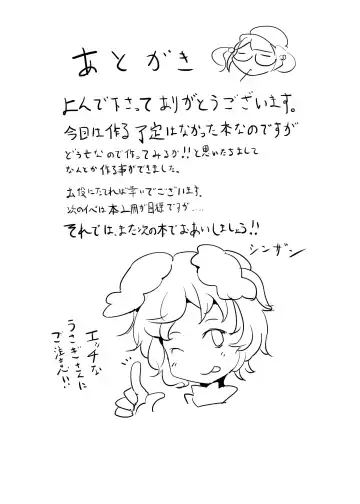 あとがき
よんで下さってありがとうございます。
今回は作る予定はなかった本なのですが
どうせなので作ってみるか!!と思いたちまして
なんとか作る事ができました。
お役にたてれば幸いでございます。
次のイベは本2冊が目標ですが....
それでは、また次の本でおあいしましょう!!
シンザン
エッチな
うさぎさんに
ご注意!!